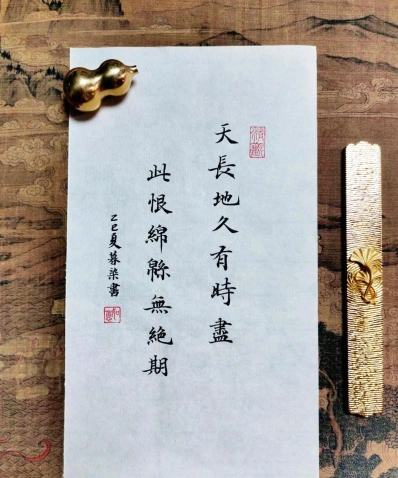 天長地久有時盡
此恨綿緜無絕期
乙巳夏暮柒書